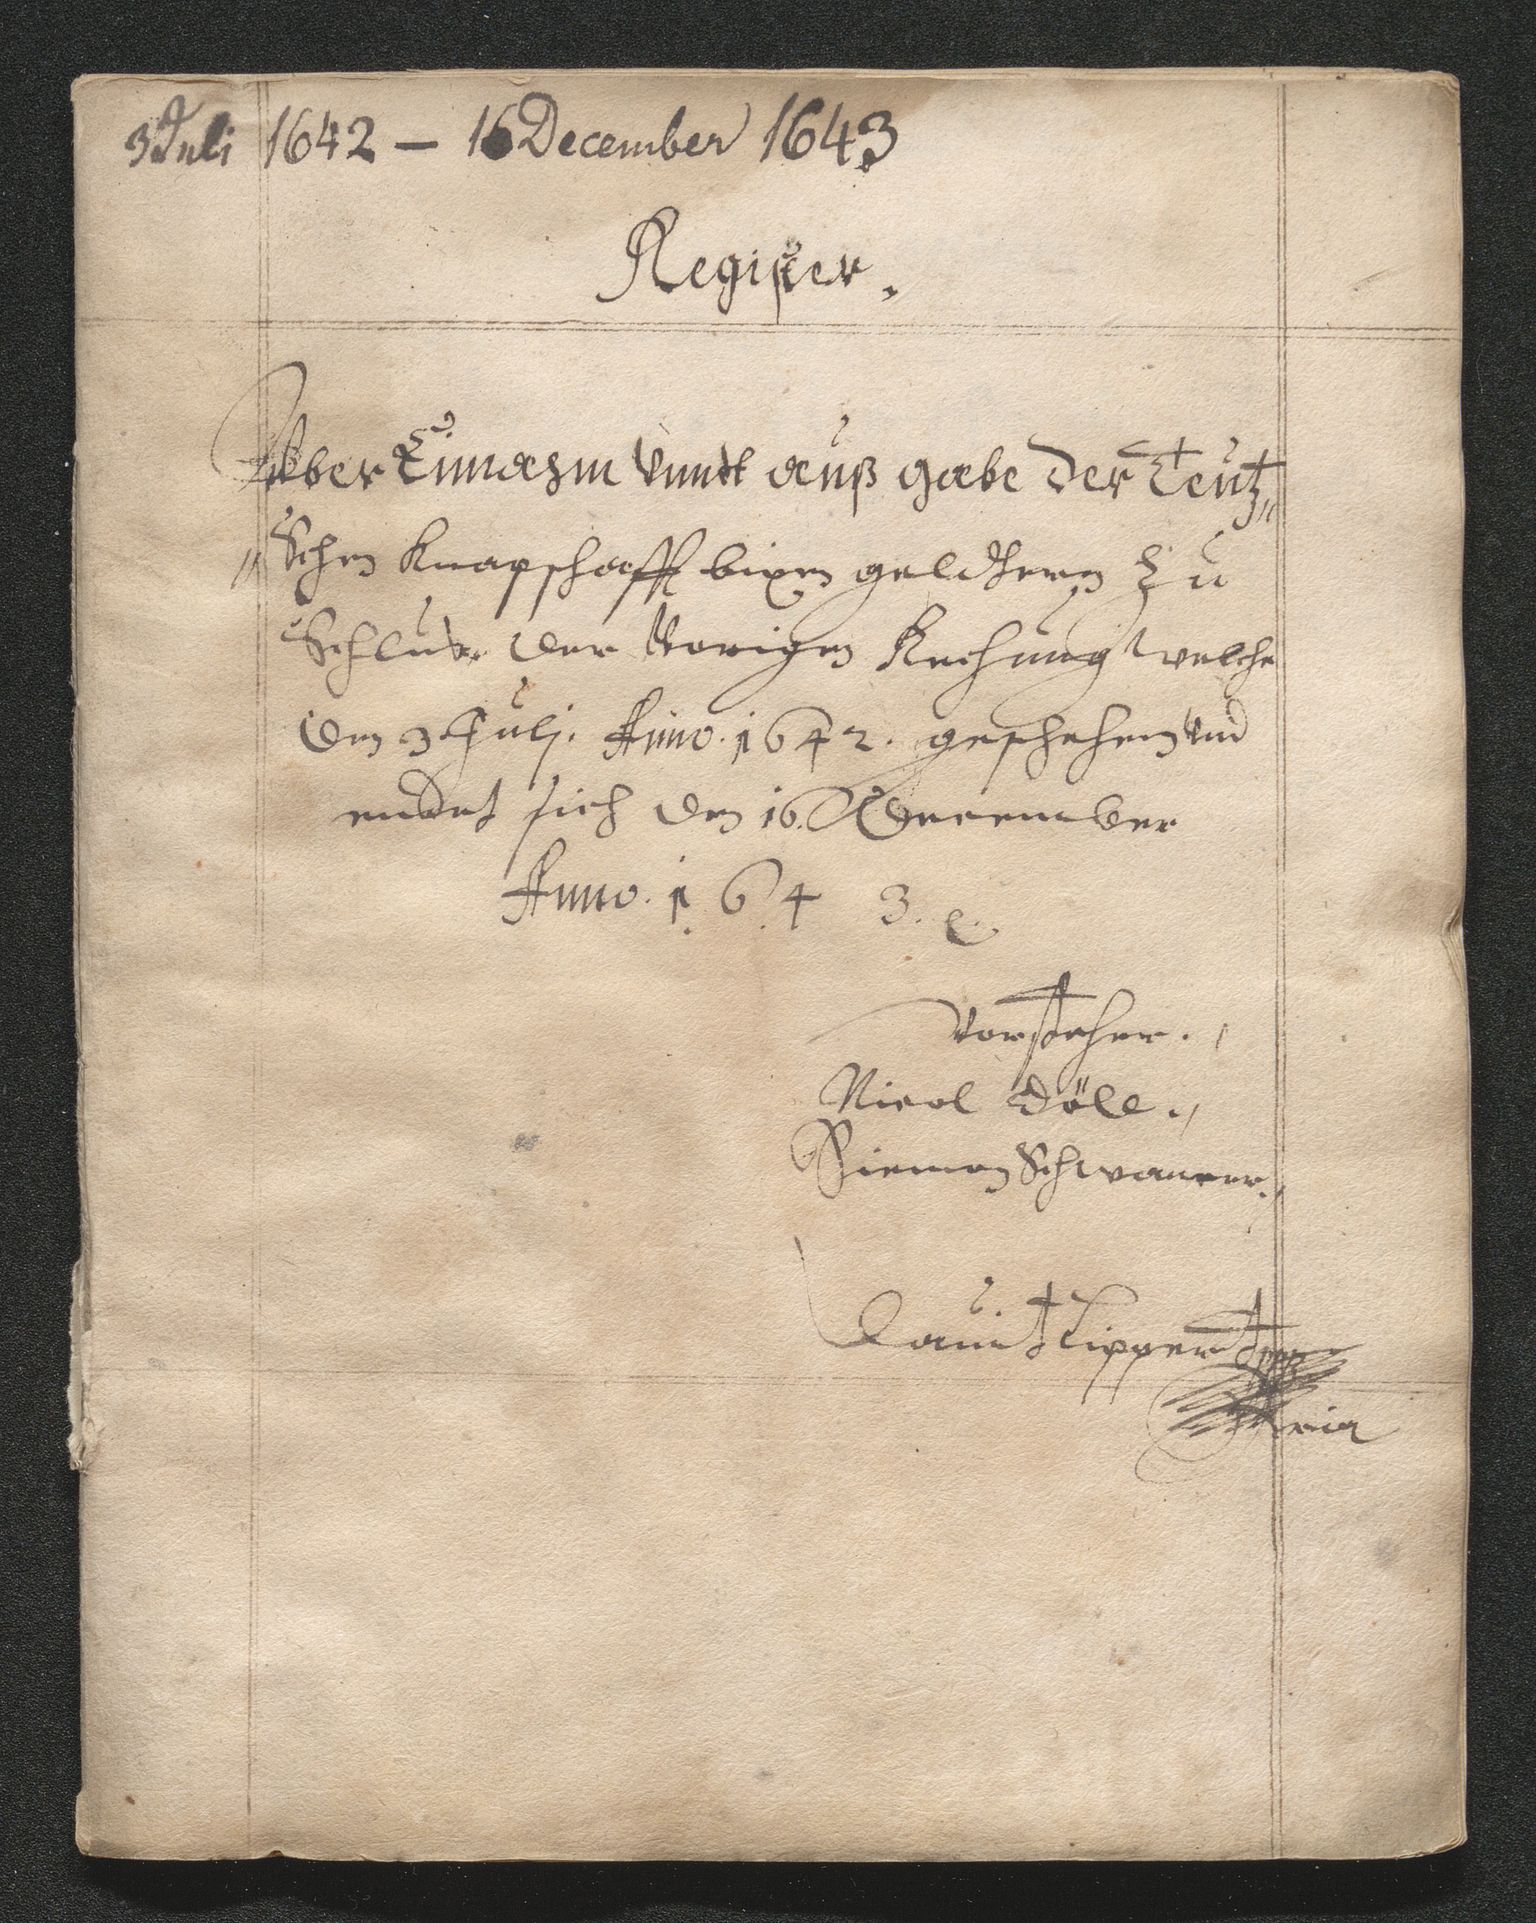 3 Juli 1642 — 16 December 1643
Register.
Vber Einnahm Vnndt auß gabe der Teut„
„Schen Knapschafft bixen geldtern zu
Schluß der Vorigen Rechnung welche
den 3 Julj. Anno. 1642. geschehen Vnd
endet sich den 16. December
Anno. 1643.
Vorsteher.
Nicol Döll.
Siemon Schwaner.
Dauit Lippertt